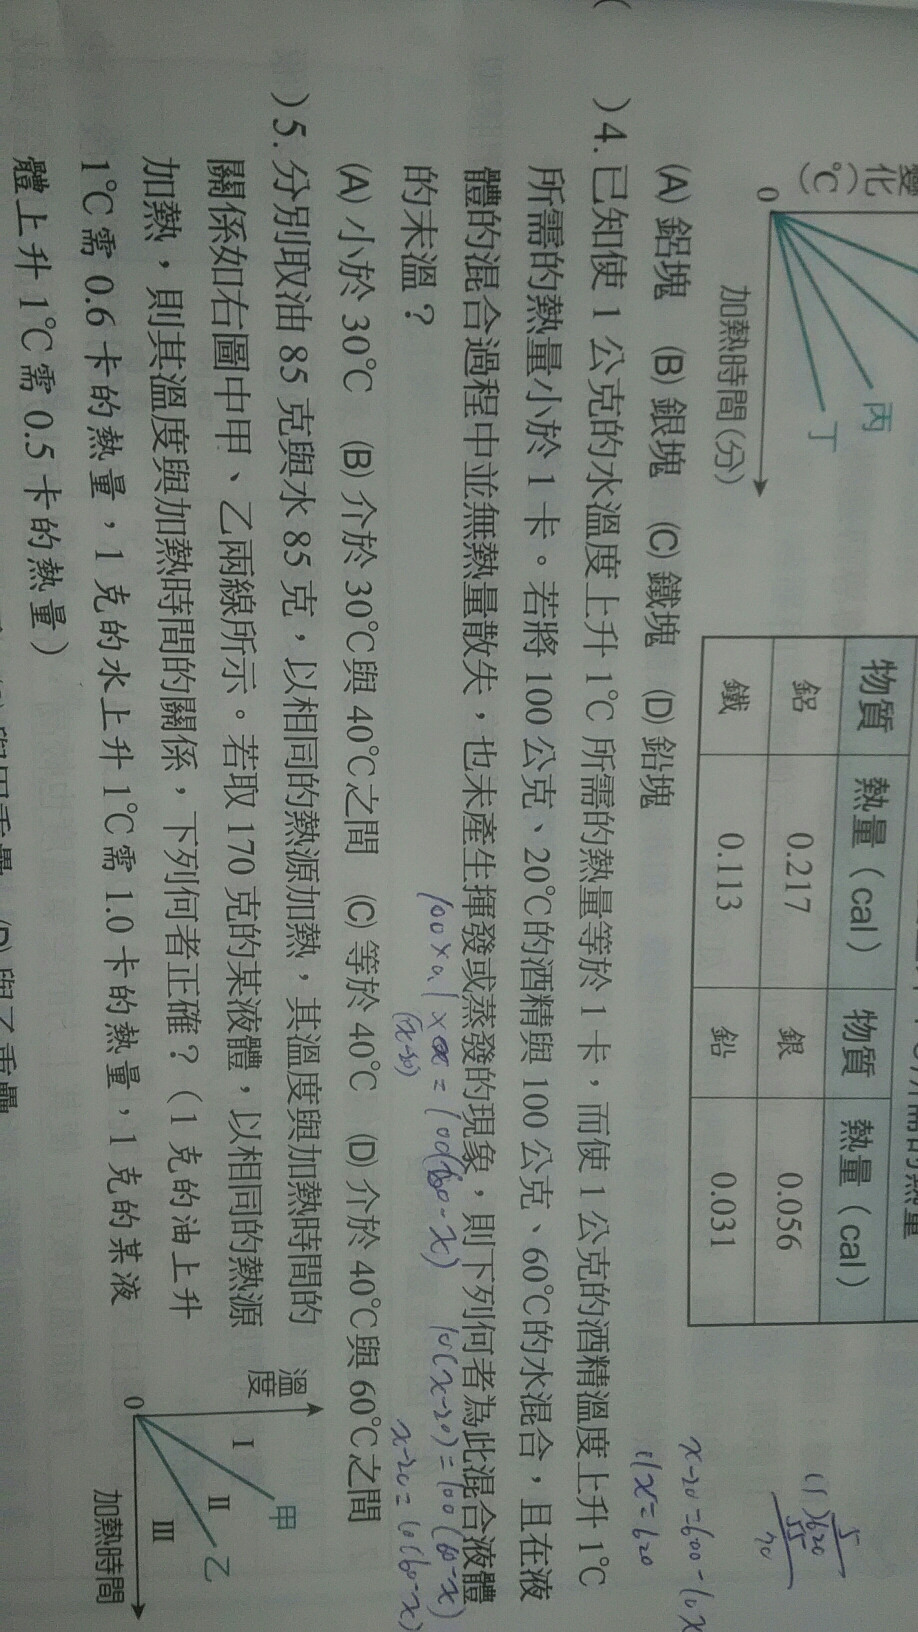 變化(℃)
0
加熱時間(分)
丙
丁
物質 熱量(cal) 物質 熱量(cal)
鋁 0.217 銀 0.056
鐵 0.113 鉛 0.031
(A)鋁塊 (B)銀塊 (C)鐵塊 (D)鉛塊
)4.已知使1公克的水溫度上升1℃所需的熱量等於1卡,而使1公克的酒精溫度上升1℃
所需的熱量小於1卡。若將100公克、20℃的酒精與100公克、60℃的水混合,且在液
體的混合過程中並無熱量散失,也未產生揮發或蒸發的現象,則下列何者為此混合液體
的末溫?
(A)小於30℃ (B)介於30℃與40℃之間 (C)等於40℃ (D)介於40℃與60℃之間
10(x-20)=100(60-x)
x-20=10(60-x)
x-20=600-10x
11x=620
)5.分別取油85克與水85克,以相同的熱源加熱,其溫度與加熱時間的
關係如右圖中甲、乙兩線所示。若取170克的某液體,以相同的熱源
加熱,則其溫度與加熱時間的關係,下列何者正確?(1克的油上升
1℃需0.6卡的熱量,1克的水上升1℃需1.0卡的熱量,1克的某液
體上升1℃需0.5卡的熱量)
溫度
0
I
甲
II
乙
III
加熱時間